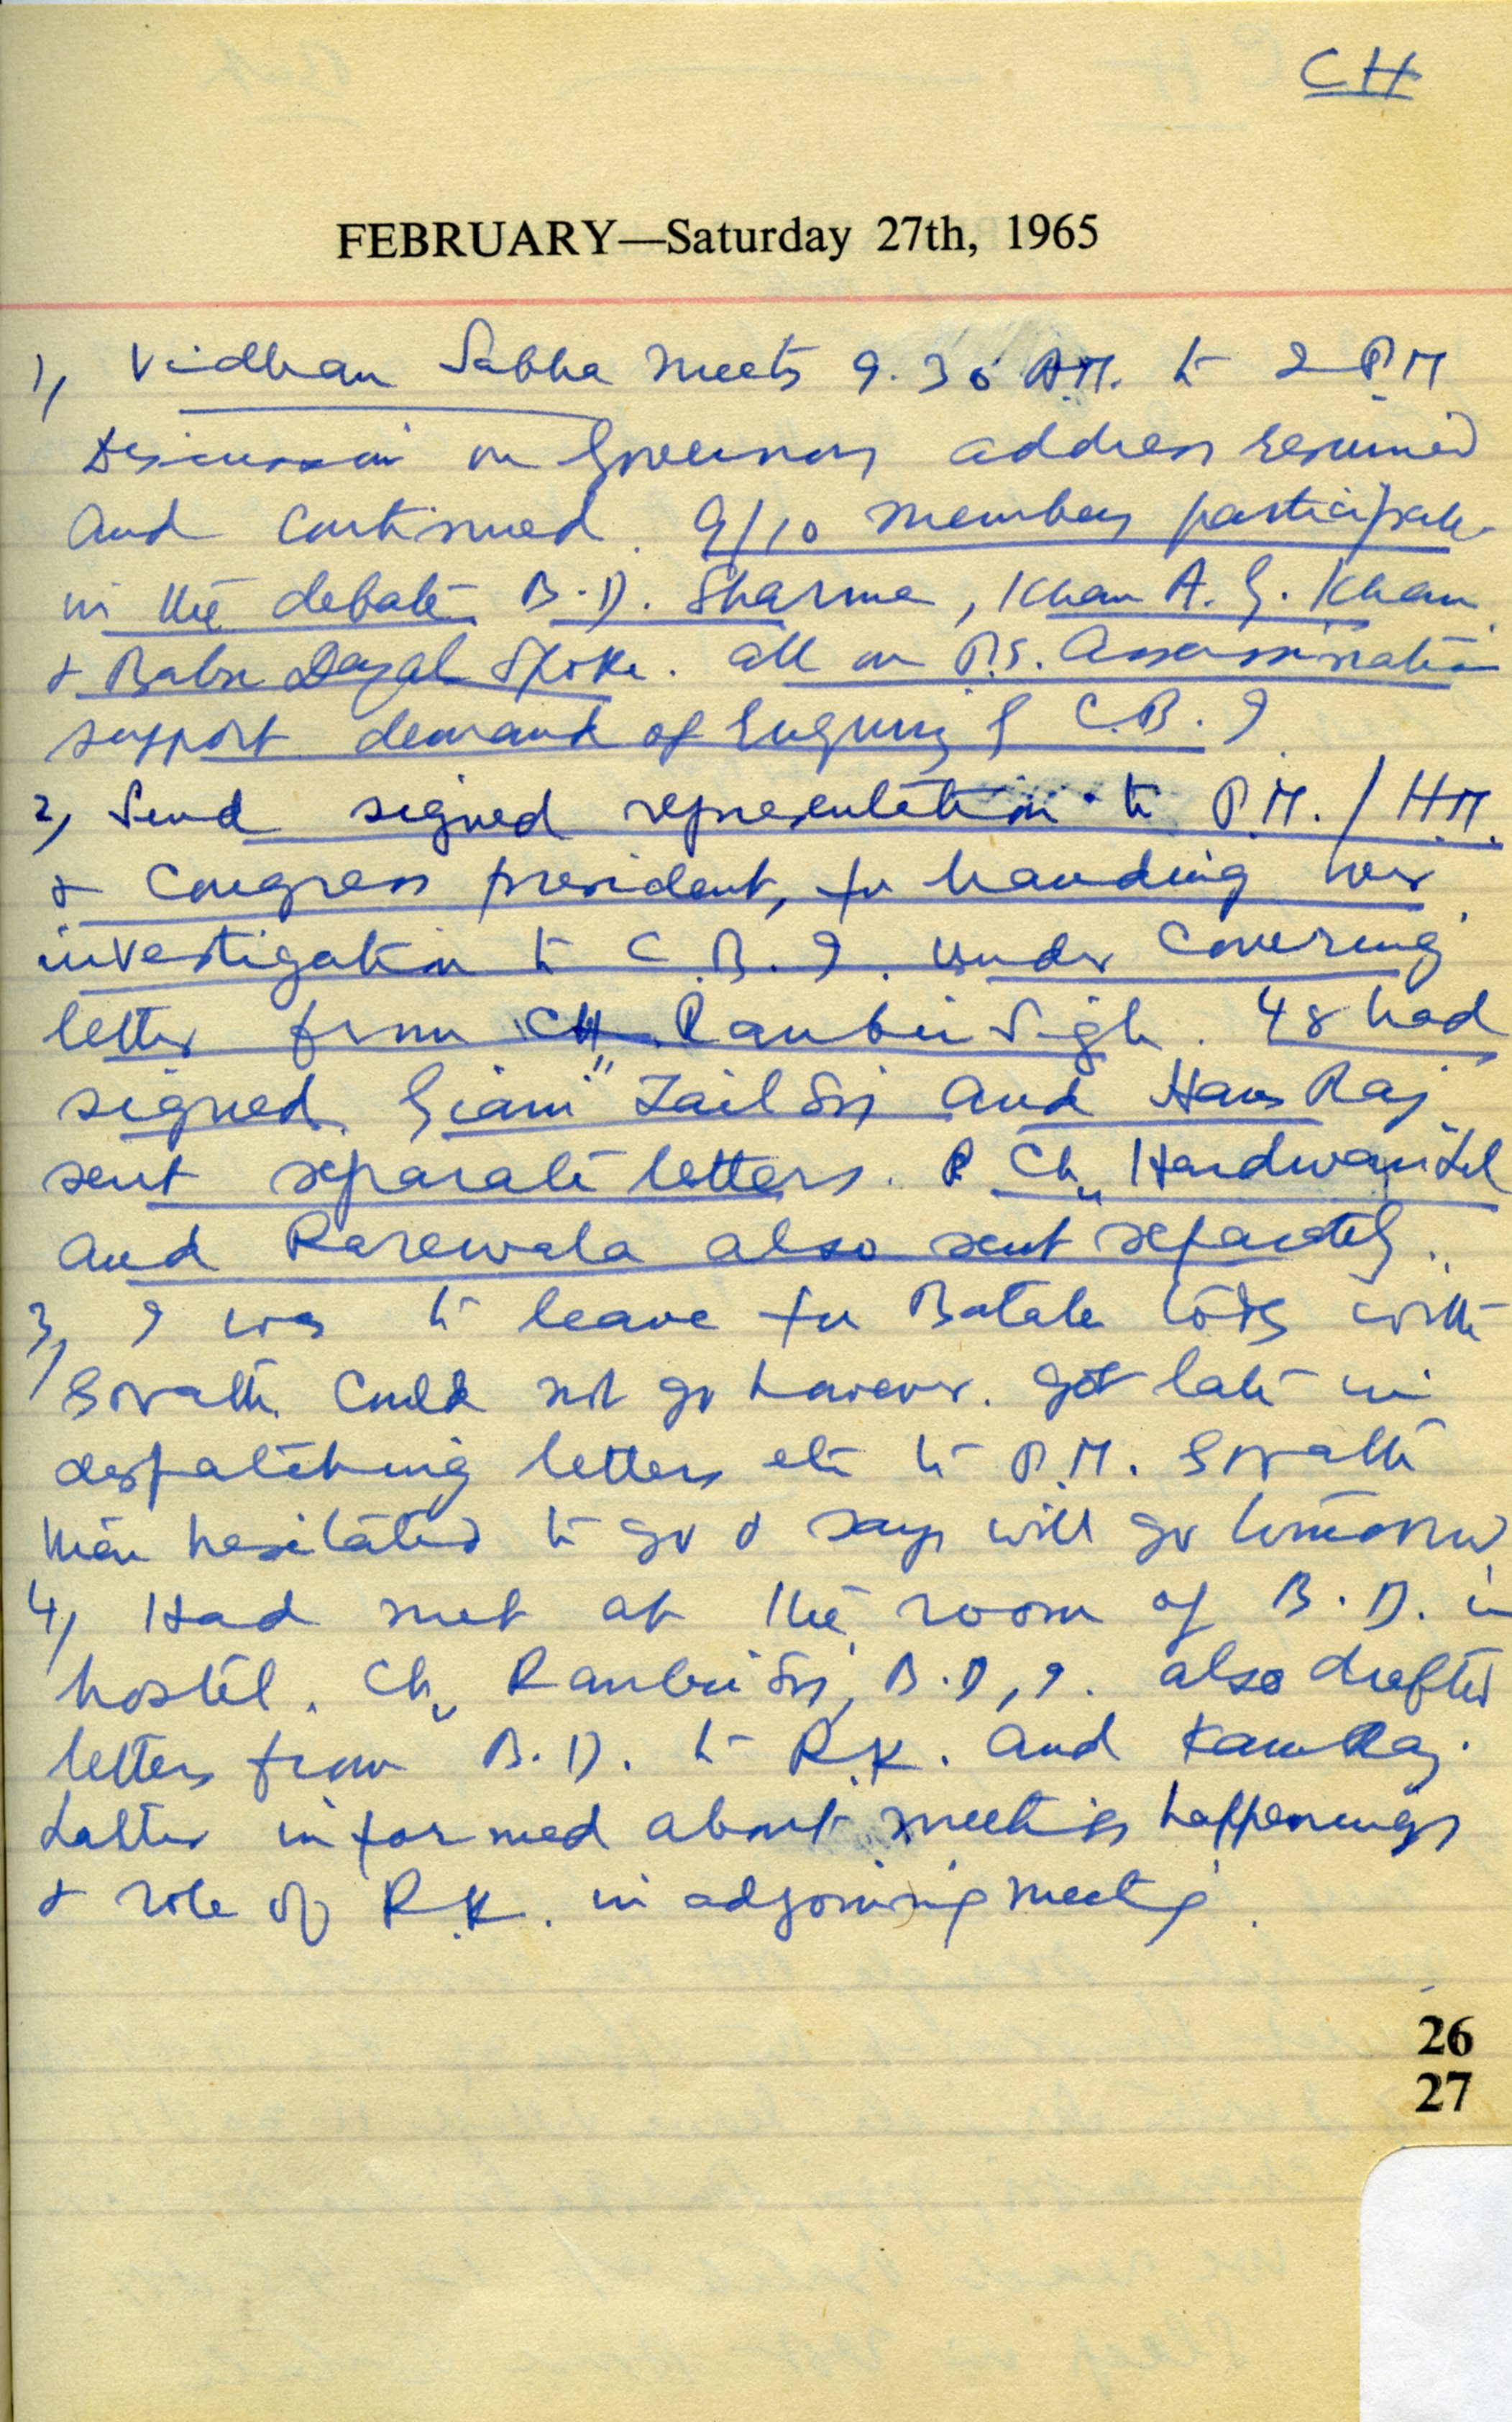 CH
FEBRUARY—Saturday 27th, 1965
1, Vidhan Sabha meets 9.30 A.M. to 2 P.M
Discussion on Governors address resumed
and continued. 9/10 members participate
in the debate B.D. Sharma, Khan A.G. Khan
& Babu Dayal Spoke. all on P.S. Assassination
support demand of Enquiry by C.B.I
2, Send signed representation to P.M. / H.M.
& Congress president, for handing over
investigation to C.B.I. under covering
letter from CH. Ranbir Singh. 48 had
signed. Giani Zail Sing and Hans Raj
sent separate letters. Ch, Hardwari Lal
and Rarewala also sent separately.
3, I was to leave for Batala with
could not go however. got late in
despatching letters etc to P.M.
then hesitated to go & says will go tomorrow
4, Had met at the room of B.D. in
hostel. Ch, Ranbir Sing, B.D, I. also drafted
letters from B.D. to R.K. and Kam Raj.
Latter informed about meetings happenings
& role of R.K. in adjoining meeting.
26
27